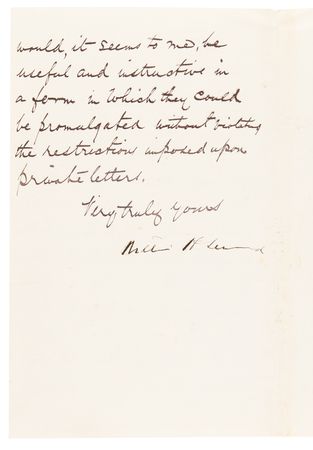 would, it seems to me, be
useful and instructive in
a form in which they could
be promulgated without violating
the restriction imposed upon
private letters.
Very truly yours
William H Seward